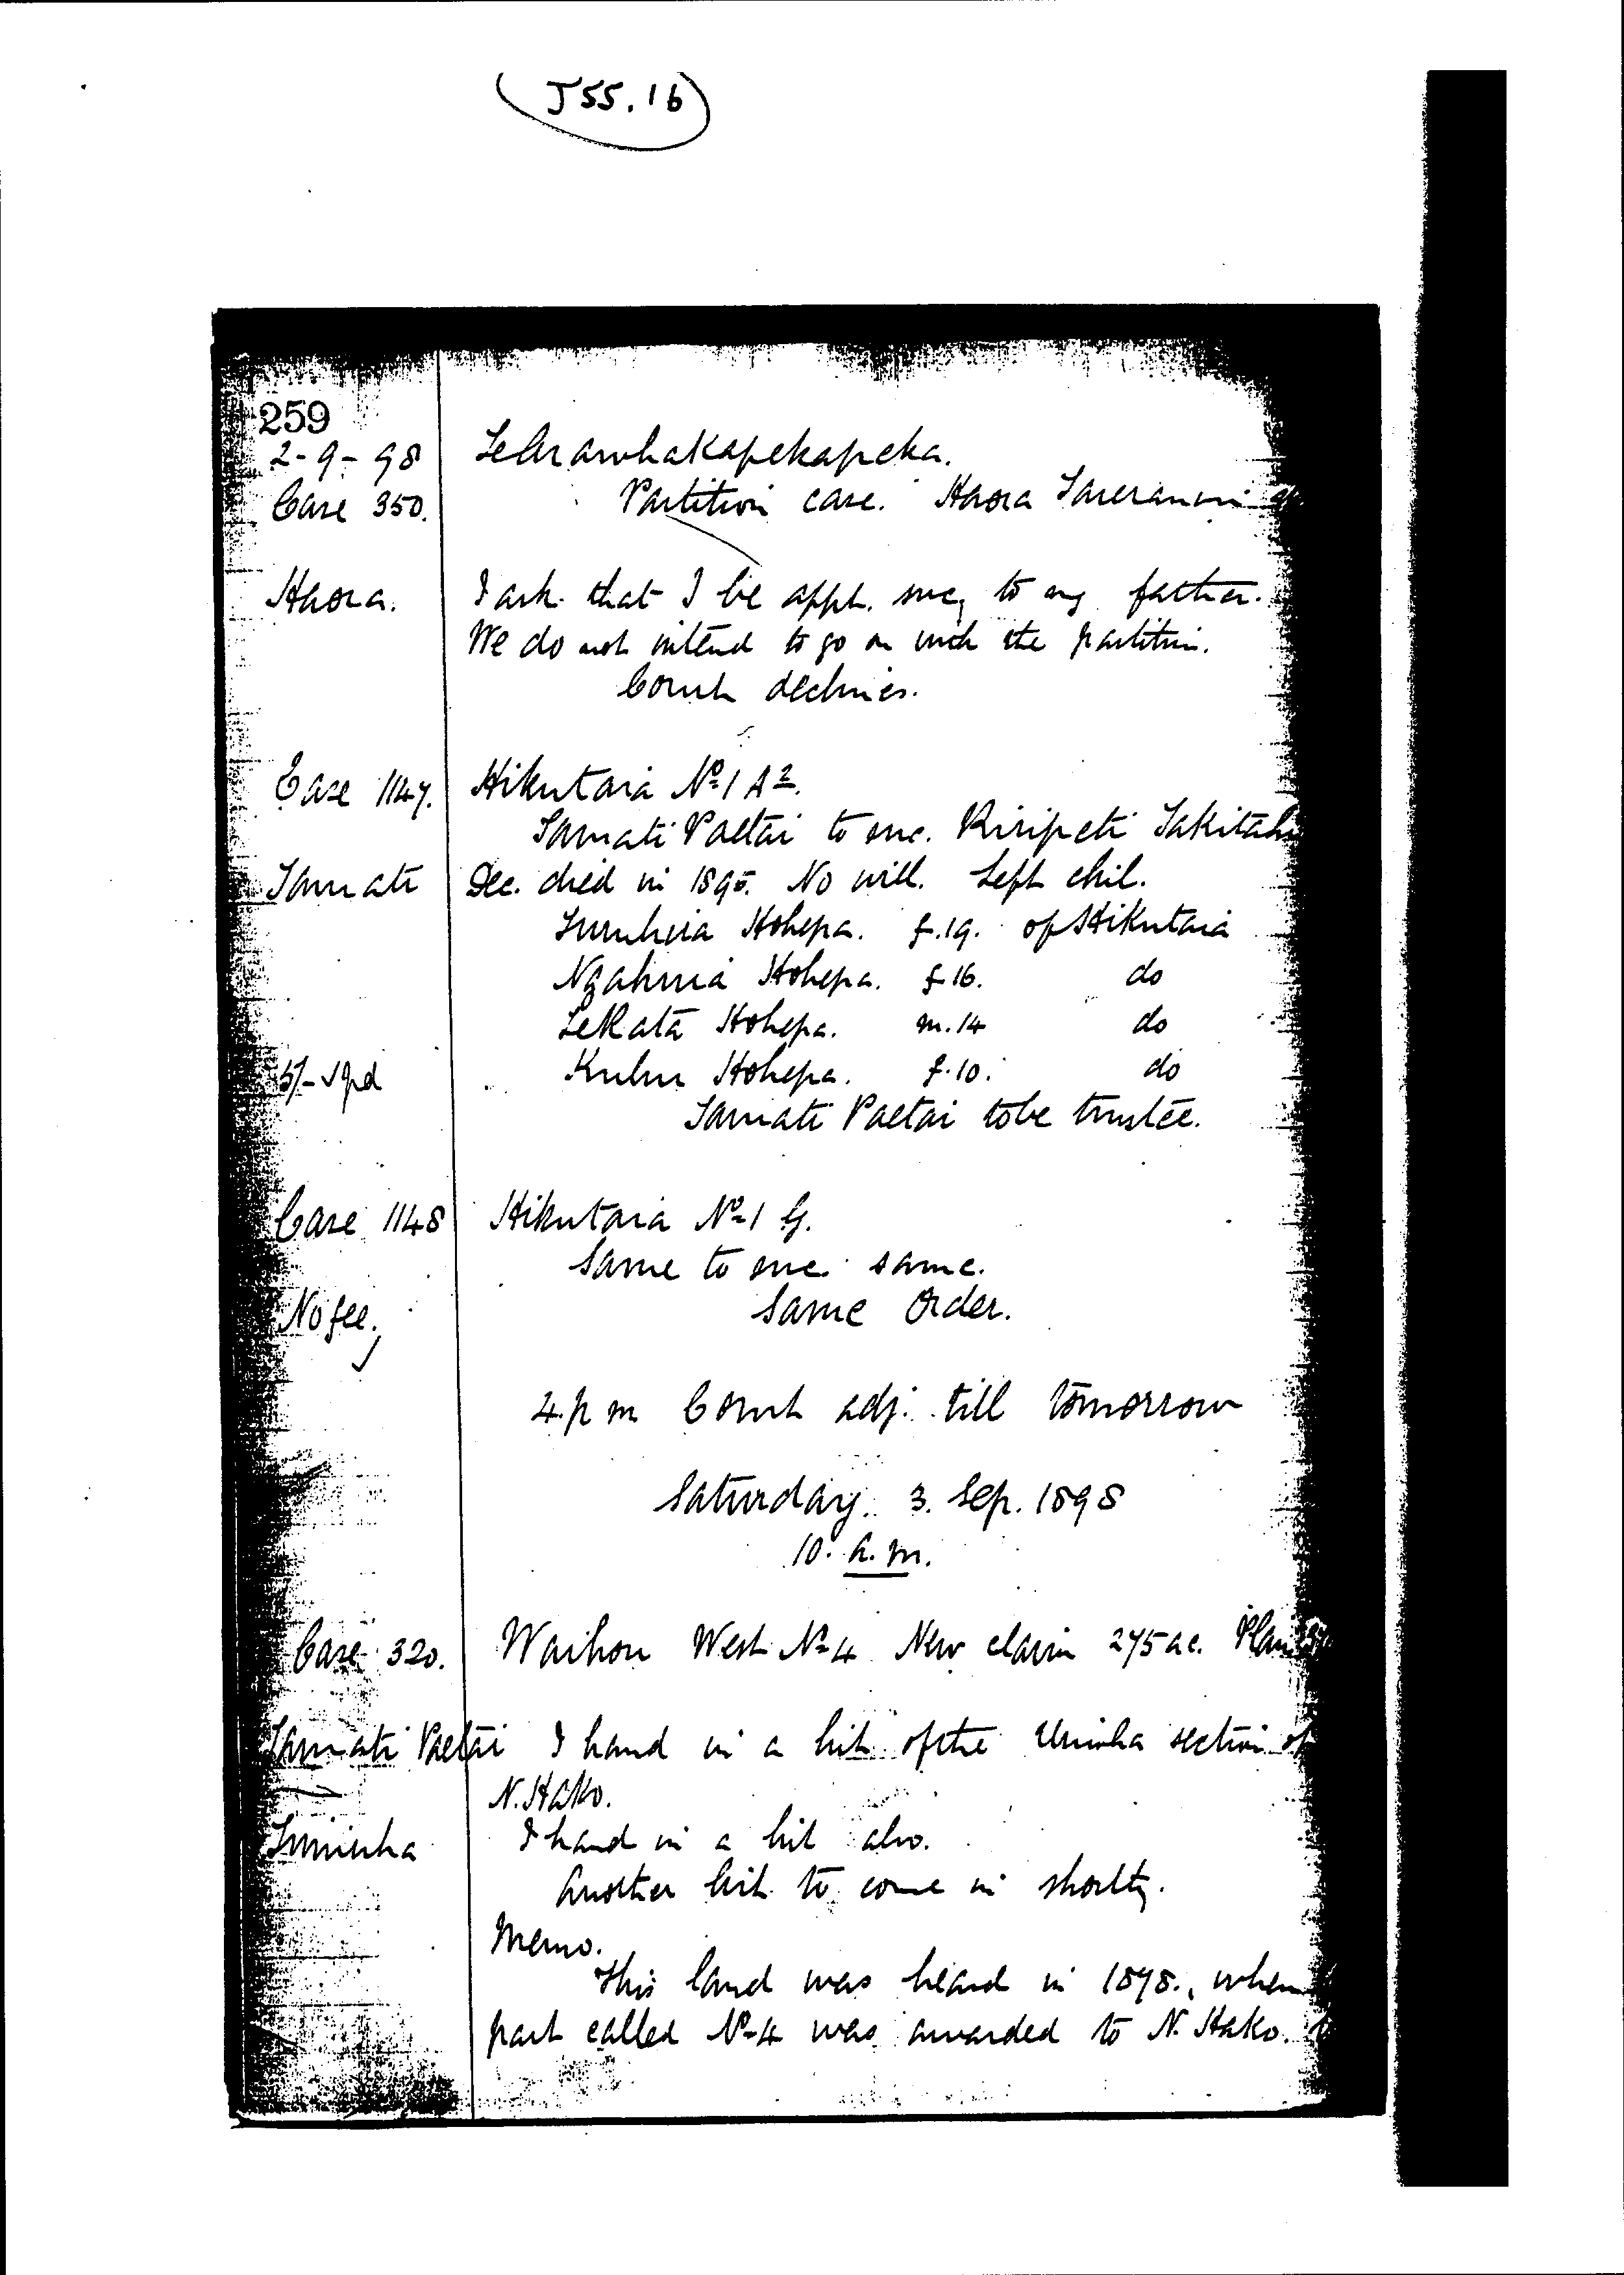 J55.16
259
2-9-98 Te Arawhakapekapeka.
Case 350. Partition case. Haora Tareranui
Haora. I ask that I be appt. suc. to my father.
We do not intend to go on with the partition.
Court declines.
Case 1147. Hikutaia No 1 A2.
Tamati Paetai to suc. Riripeti
Tamati Dec. died in 1895. No will. Left chil.
Hohepa. f.19. of Hikutaia
Ngahuia Hohepa. f 16. do
Te Rata Hohepa. m. 14 do
5/- pd Kuku Hohepa. f. 10. do
Tamati Paetai to be trustee.
Case 1148 Hikutaia No 1 G.
Same to suc. same.
No fee. Same Order.
4. p m Court adj. till tomorrow
Saturday. 3. Sep. 1898
10. a.m.
Case 320. Waihou West No 4 New claim 275 ac. Plan
Tamati Paetai I hand in a list of the section of
N. Hako.
I hand in a list also.
Another list to come in shortly.
Memo.
This land was heard in 1878., when
part called No 4 was awarded to N. Hako.